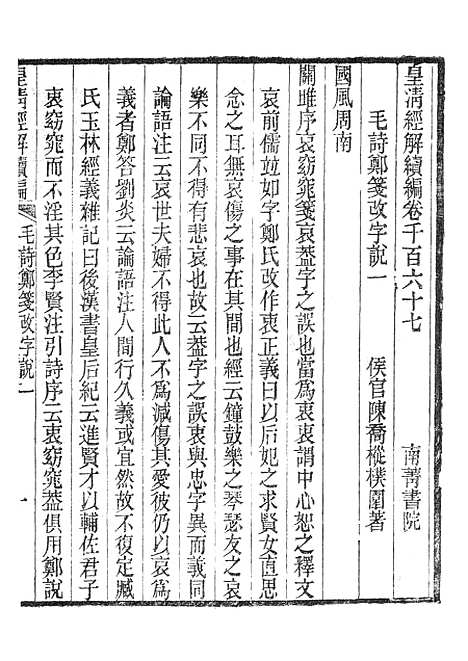 皇清經解續編卷千百六十七　南菁書院
毛詩鄭箋改字說一　侯官陳喬樅樸園著
國風周南
關雎序哀窈窕箋哀蓋字之誤也當爲衷衷謂中心恕之釋文
哀前儒竝如字鄭氏改作衷正義曰以后妃之求賢女直思
念之耳無哀傷之事在其間也經云鐘鼓樂之琴瑟友之哀
樂不同不得有悲哀也故云蓋字之誤衷與忠字異而義同
論語注云哀世夫婦不得此人不爲減傷其愛彼仍以哀爲
義者鄭答劉炎云論語注人間行久義或宜然故不復定臧
氏玉林經義雜記曰後漢書皇后紀云進賢才以輔佐君子
衷窈窕而不淫其色李賢注引詩序云衷窈窕蓋俱用鄭說
皇清經解續編　毛詩鄭箋改字說一　一